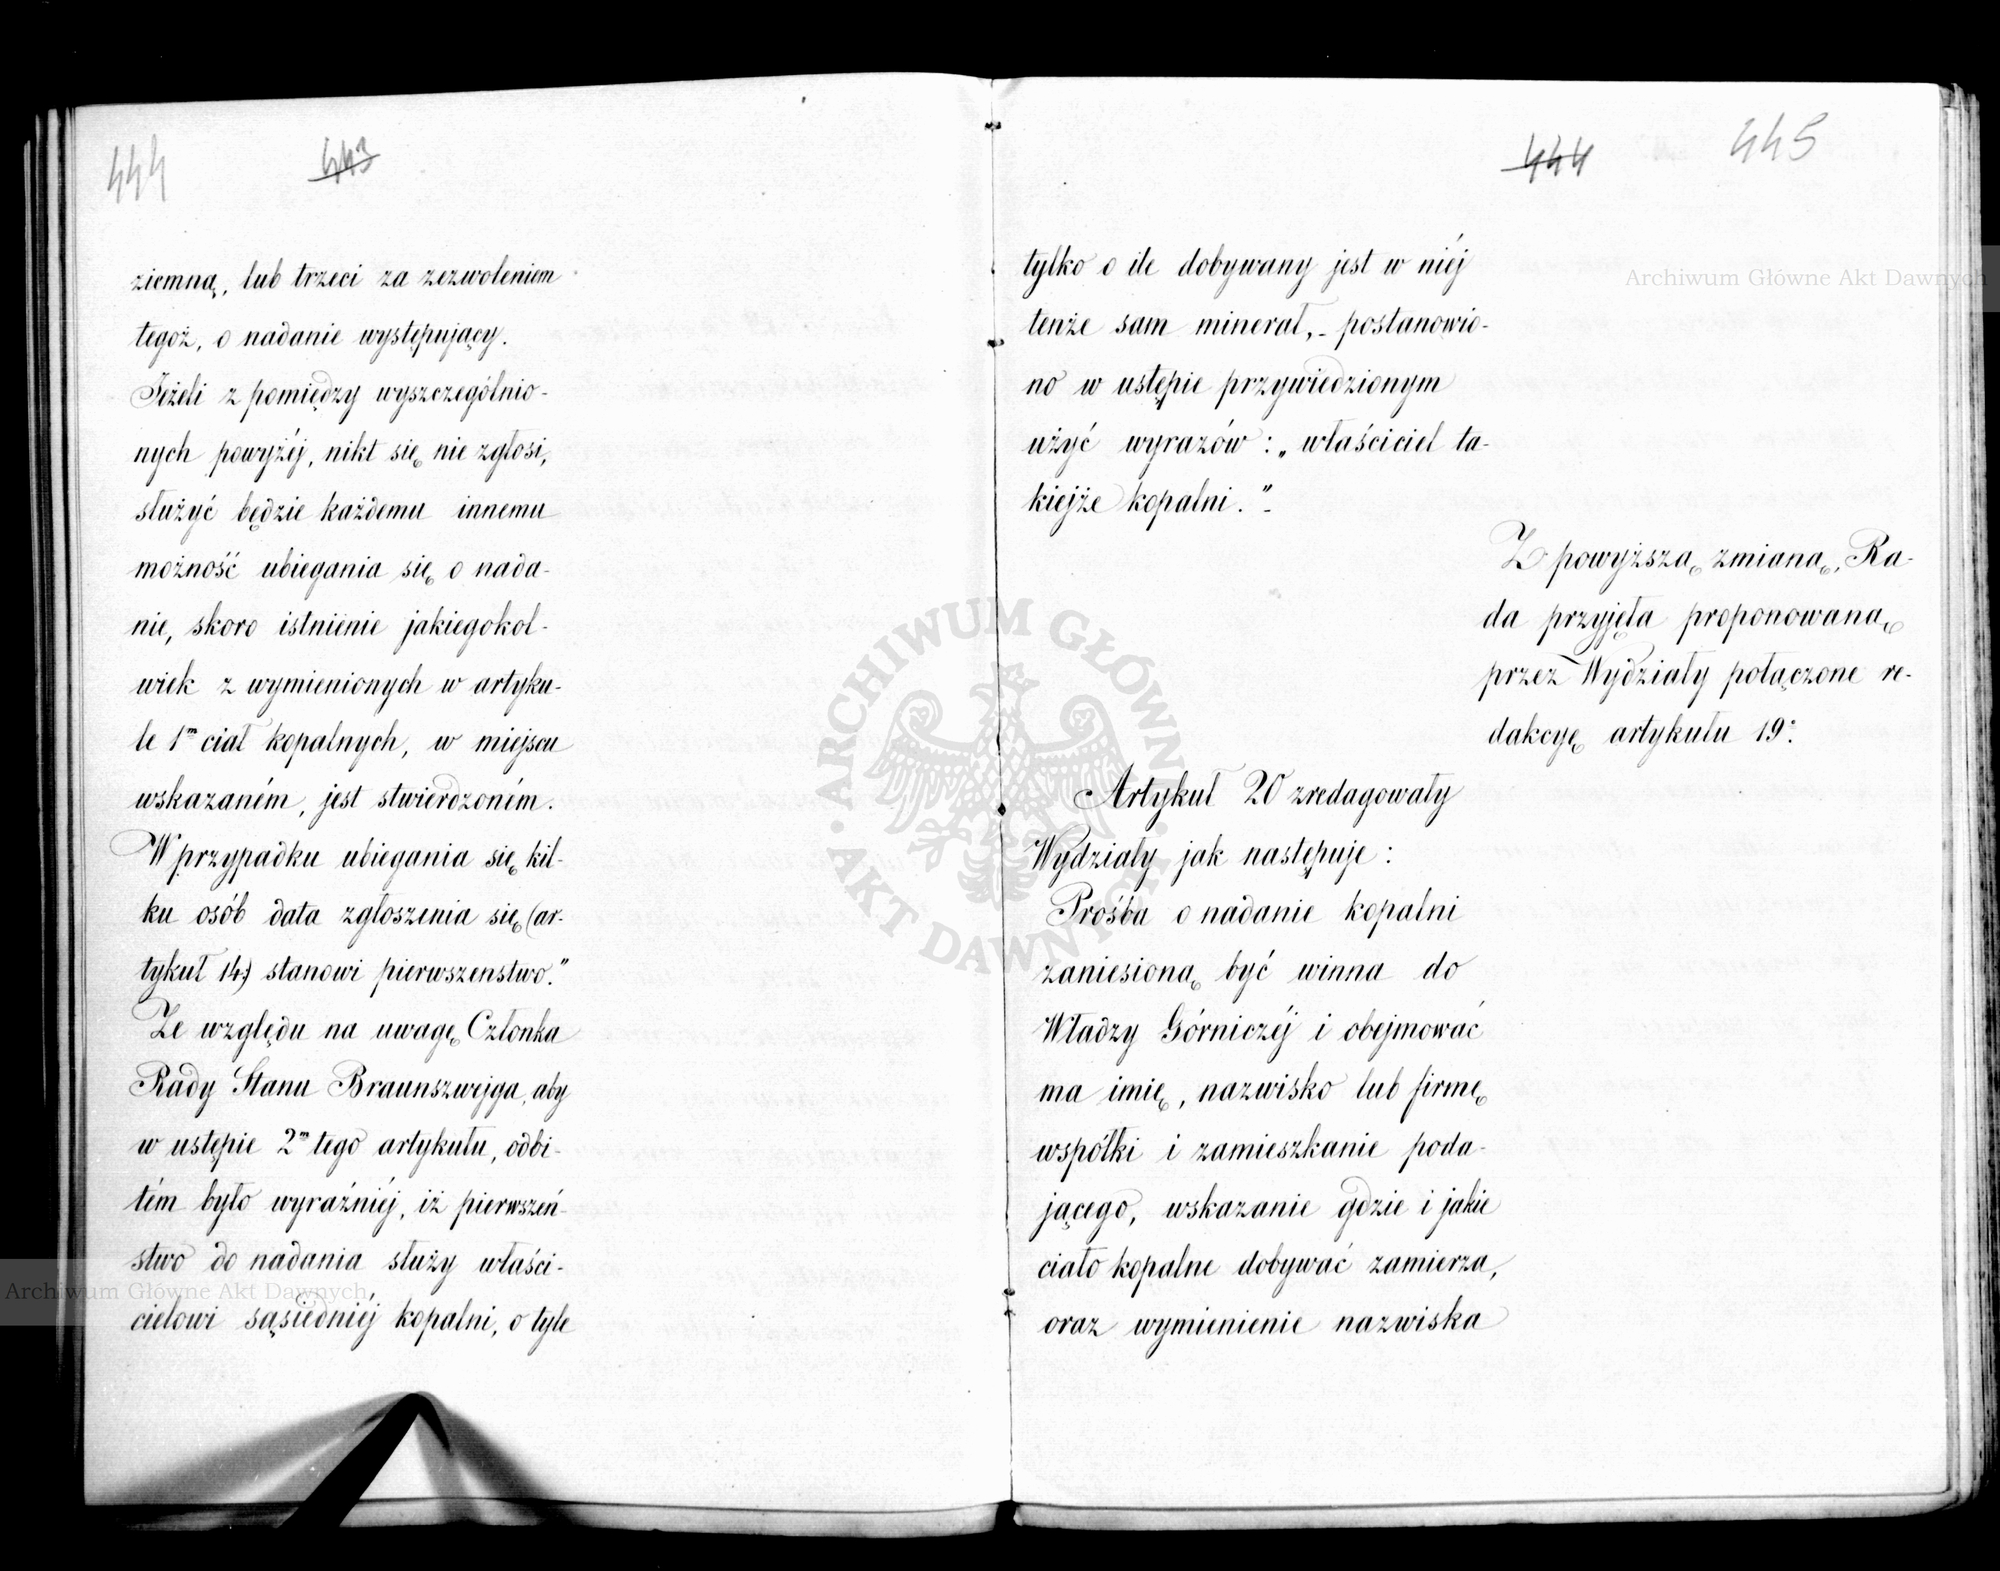 444
443
ziemną, lub trzeci za zezwoleniem
tegoż, o nadanie występujący.
Jeżeli z pomiędzy wyszczególnio-
nych powyżéj, nikt się nie zgłosi,
służyć będzie każdemu innemu
możność ubiegania się o nada-
nie, skoro istnienie jakiegokol-
wiek z wymienionych w artyku-
le 1m ciał kopalnych, w miejscu
wskazaném, jest stwierdzoném.
W przypadku ubiegania się kil-
ku osób data zgłoszenia się (ar-
tykuł 14) stanowi pierwszenstwo."
Ze względu na uwagę Członka
Rady Stanu Braunszwejga, aby
w ustępie 2m tego artykułu, odbi-
tém było wyraźniéj, iż pierwszeń-
stwo do nadania służy właści-
cielowi sąsiedniéj kopalni, o tyle
444
445
tylko o ile dobywany jest w niéj
tenże sam minerał, - postanowio-
no w ustępie przywiedzionym
użyć wyrazów: „właściciel ta-
kiejże kopalni." -
Z powyższą zmianą, Ra-
da przyjęła proponowaną
przez Wydziały połączone re-
dakcyę artykułu 19o.
Artykuł 20 zredagowały
Wydziały jak następuje:
Prośba o nadanie kopalni
zaniesioną być winna do
Władzy Górniczéj i obejmować
ma imię, nazwisko lub firmę
współki i zamieszkanie poda-
jącego, wskazanie gdzie i jakie
ciało kopalne dobywać zamierza,
oraz wymienienie nazwiska
Archiwum Główne Akt Dawnych
Archiwum Główne Akt Dawnych
ARCHIWUM GŁÓWNE · AKT DAWNYCH ·